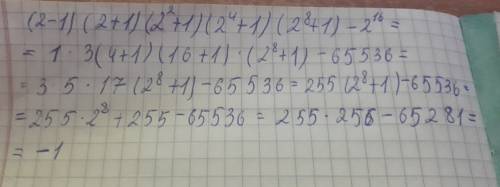 (2-1)(2+1)(2²+1)(2⁴+1)(2⁸+1)-2¹⁶=
= 1·3(4+1)(16+1)·(2⁸+1)-65536=
=3 5·17(2⁸+1)-65536=255(2⁸+1)-65536=
=255·2⁸+255-65536=255·256-65281=
=-1